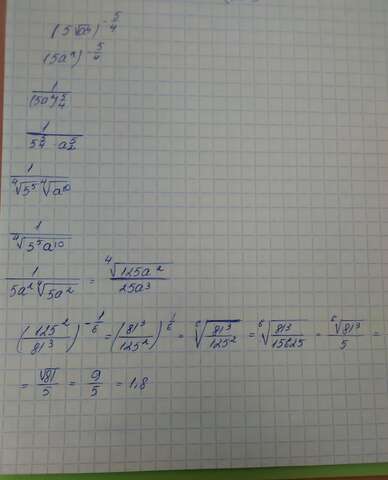 (5√a⁴)^(-5/4)
(5a²)^(-5/4)
1/(5a²)^(5/4)
1/(5^(5/4) · a^(5/2))
1/(⁴√5⁵ ⁴√a¹⁰)
1/⁴√(5⁵a¹⁰)
1/(5a² ⁴√(5a²)) = ⁴√(125a²)/(25a³)
(125²/81³)^(-1/6) = (81³/125²)^(1/6) = ⁶√(81³/125²) = ⁶√(81³/15625) = ⁶√(81³)/5 =
= √81/5 = 9/5 = 1,8